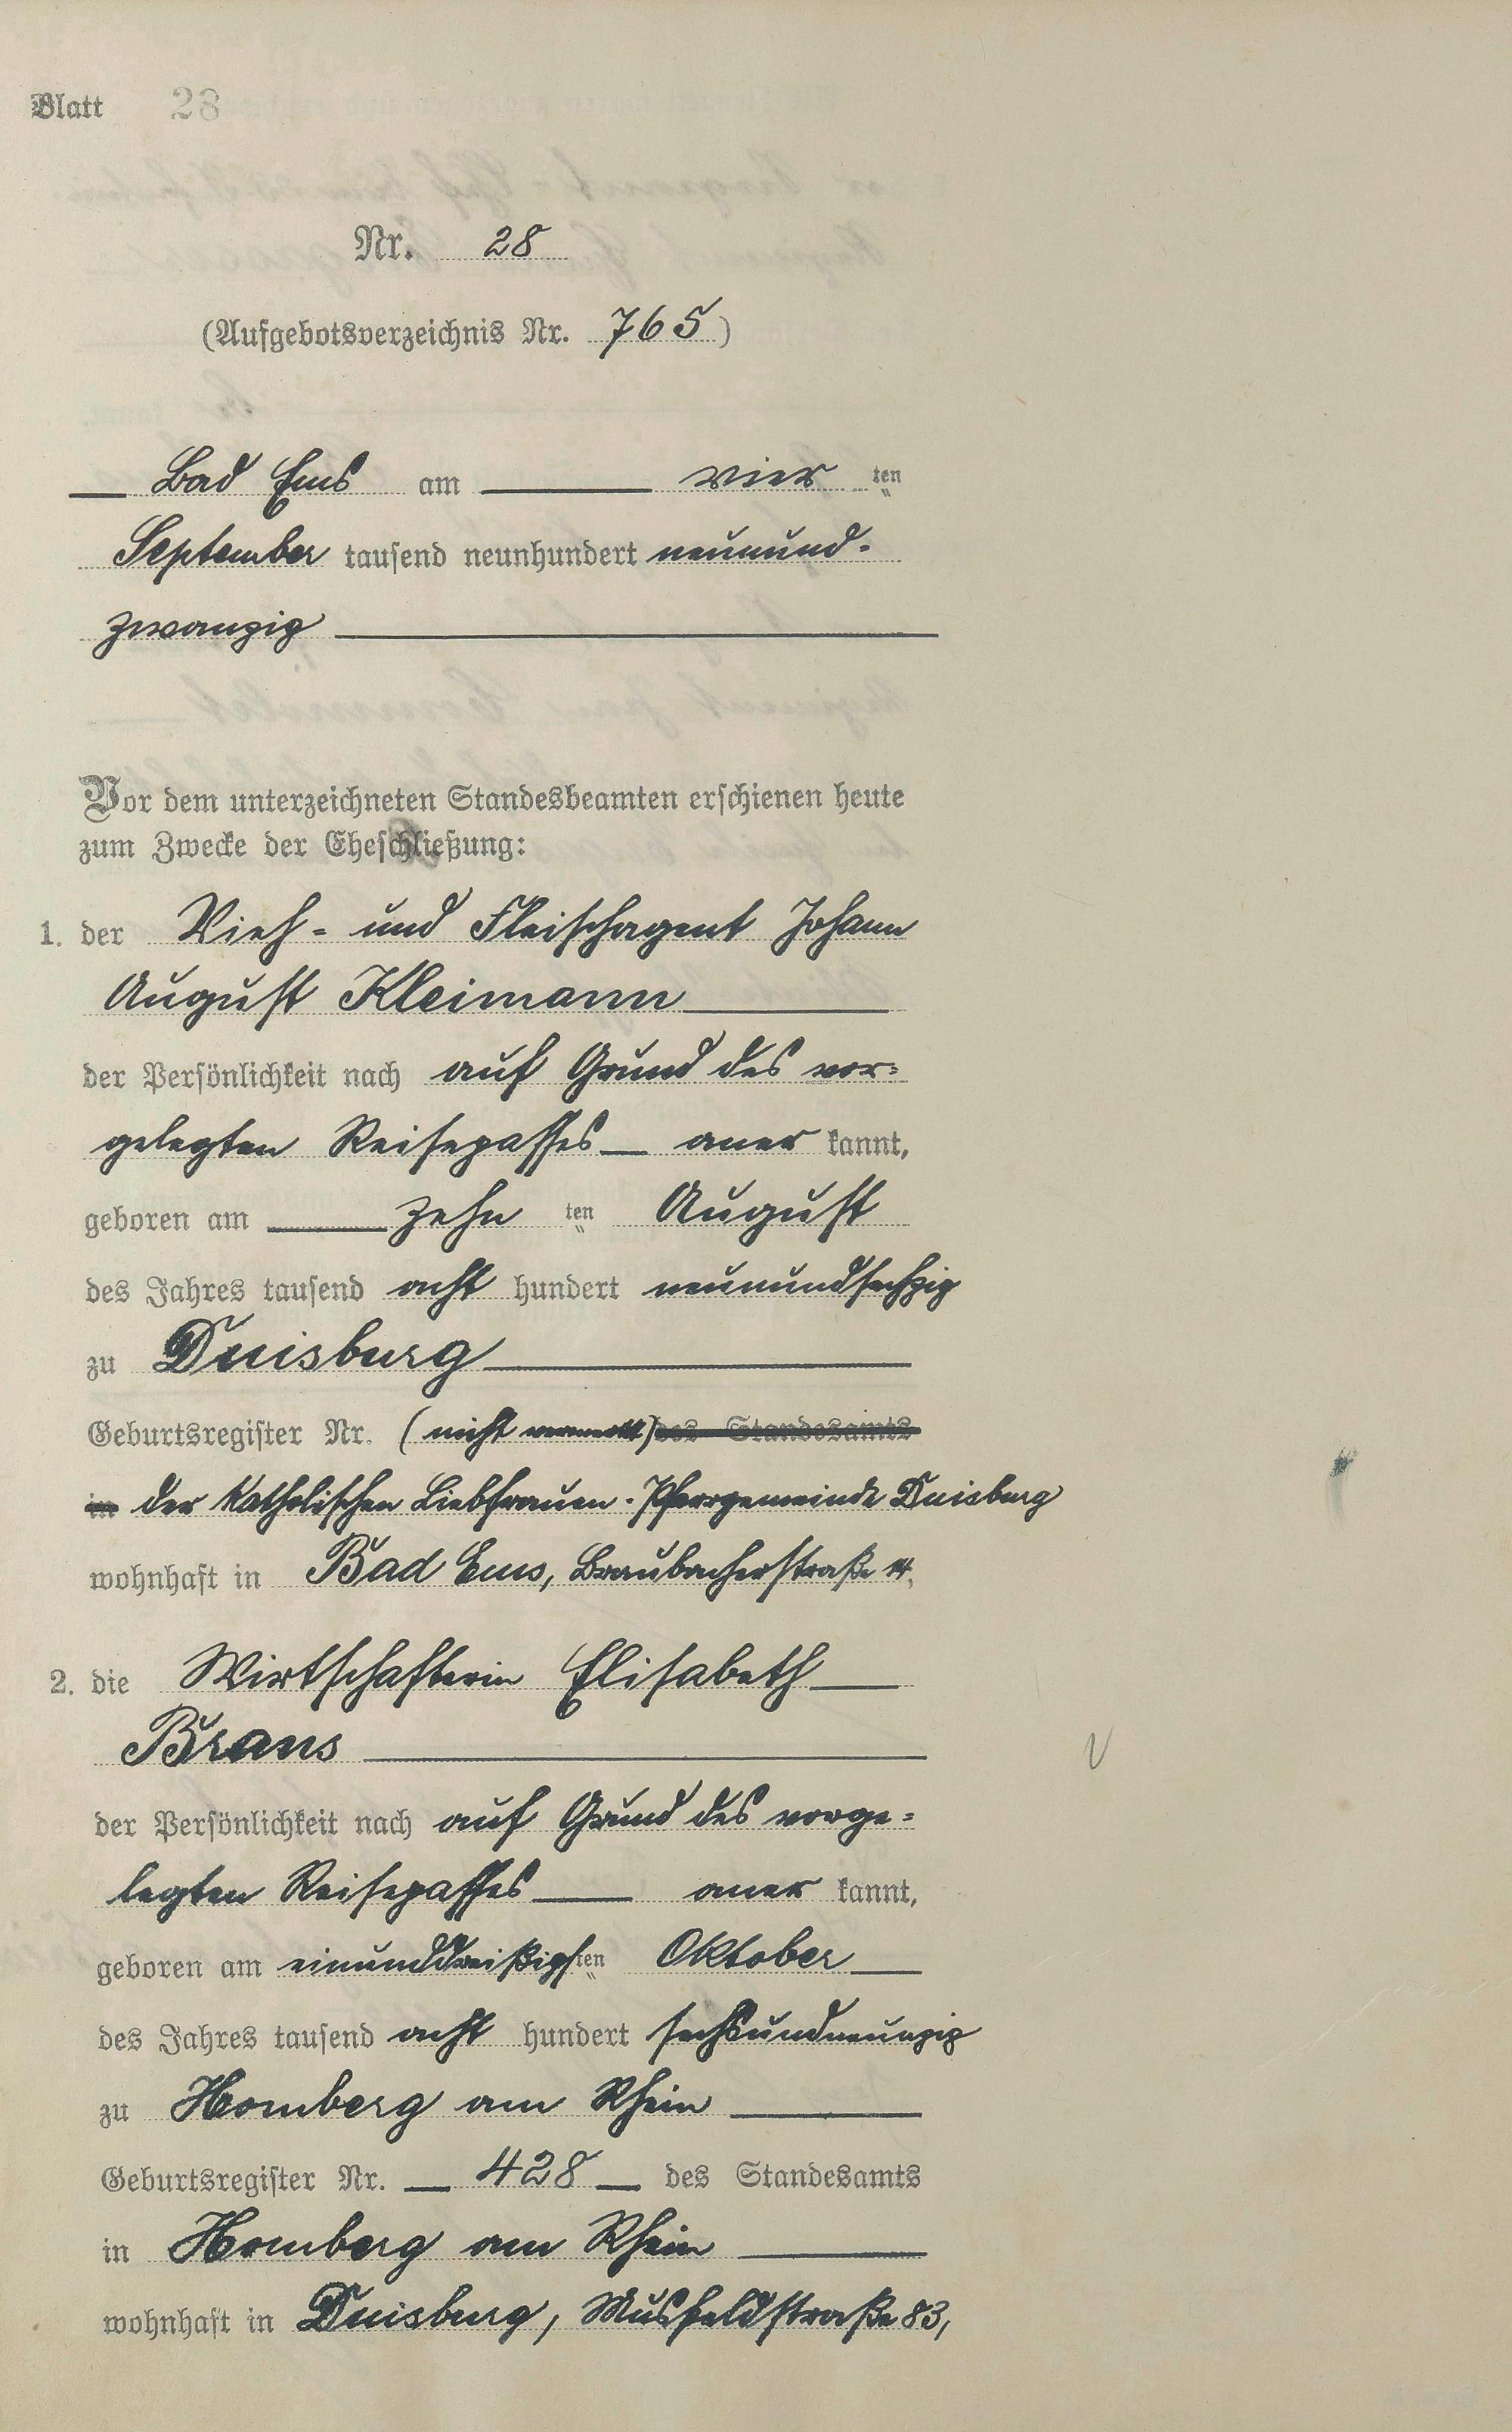 Blatt 28
Nr. 28
(Aufgebotsverzeichnis Nr. 765)
Bad Ems am vier ten
September tausend neunhundert neunund-
zwanzig
Vor dem unterzeichneten Standesbeamten erschienen heute
zum Zwecke der Eheschließung:
1. der Vieh- und Fleischagent Johann
August Kleimann
der Persönlichkeit nach auf Grund des vor-
gelegten Reisepasses aner kannt,
geboren am zehn ten August
des Jahres tausend acht hundert neunundsechzig
zu Duisburg
Geburtsregister Nr. (nicht vermerkt) des Standesamts
in der Katholischen Liebfrauen-Pfarrgemeinde Duisburg
wohnhaft in Bad Ems, Braubacherstraße
2. die Wirtschafterin Elisabeth
Brans
der Persönlichkeit nach auf Grund des vorge-
legten Reisepasses aner kannt,
geboren am einunddreißigsten Oktober
des Jahres tausend acht hundert sechsundneunzig
zu Homberg am Rhein
Geburtsregister Nr. 428 des Standesamts
in Homberg am Rhein
wohnhaft in Duisburg, Musfeldstraße 83,